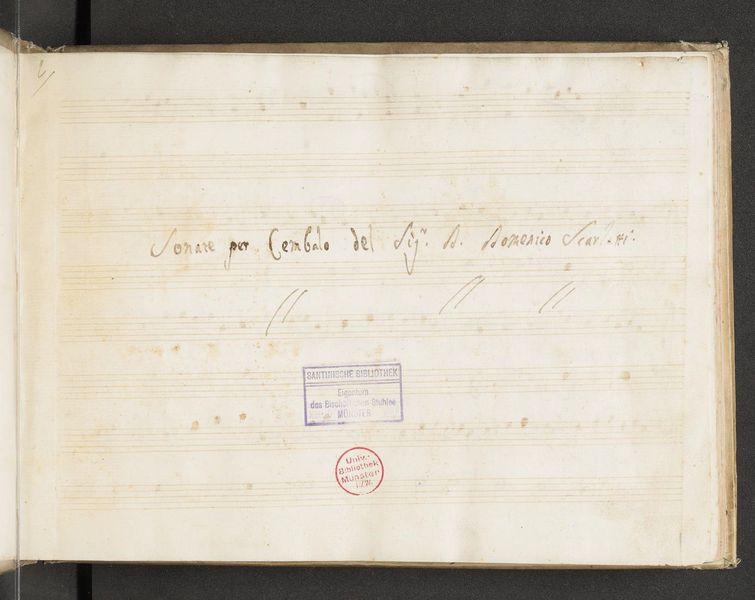 Sonate per Cembalo del Sig.r D. Domenico Scarlatti.
SANTINISCHE BIBLIOTHEK
Eigentum
des Bischöflichen Stuhles
MÜNSTER
Univ.-
Bibliothek
Münster
i.W.